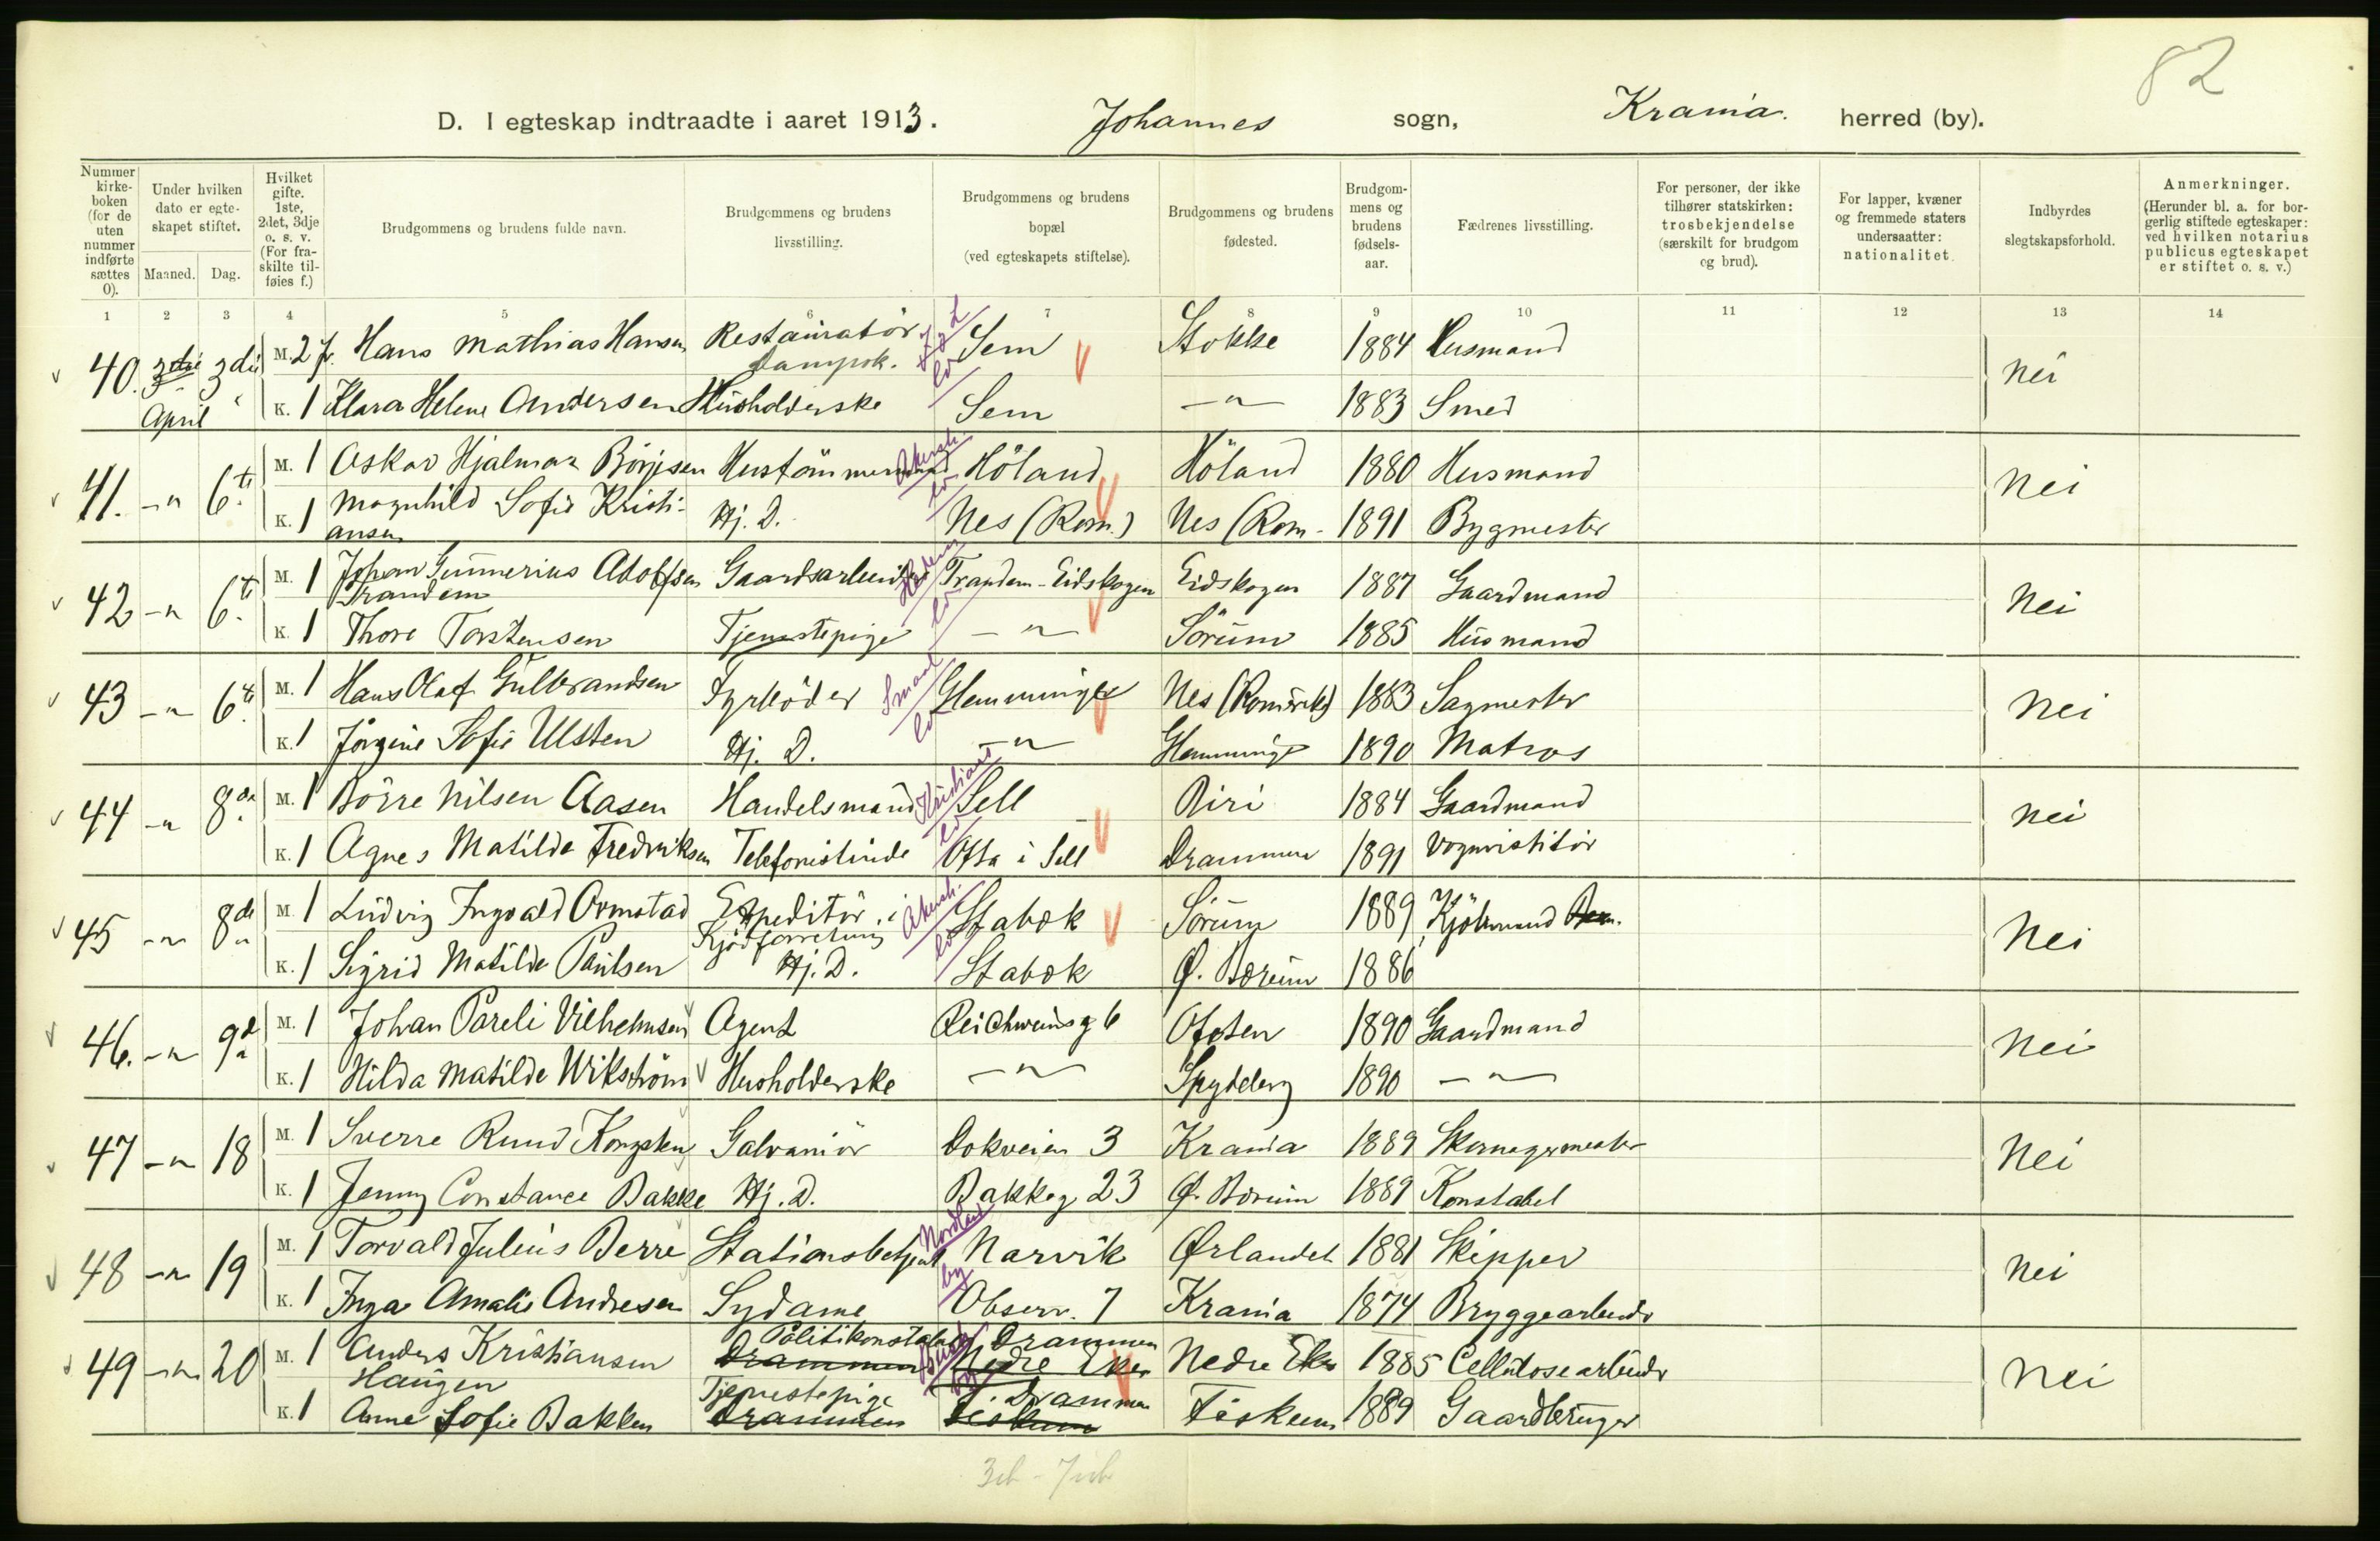 82
D. I egteskap indtraadte i aaret 1913. Johannes sogn, Krania. herred (by).
Nummer kirkeboken (for de uten nummer indførte sættes 0).
Under hvilken dato er egteskapet stiftet.
Maaned. Dag.
Hvilket gifte. 1ste, 2det, 3dje o. s. v. (For fraskilte tilføies f.)
Brudgommens og brudens fulde navn.
Brudgommens og brudens livsstilling.
Brudgommens og brudens bopæl (ved egteskapets stiftelse).
Brudgommens og brudens fødested.
Brudgommens og brudens fødselsaar.
Fædrenes livsstilling.
For personer, der ikke tilhører statskirken: trosbekjendelse (særskilt for brudgom og brud).
For lapper, kvæner og fremmede staters undersaatter: nationalitet.
Indbyrdes slegtskapsforhold.
Anmerkninger. (Herunder bl. a. for borgerlig stiftede egteskaper: ved hvilken notarius publicus egteskapet er stiftet o. s. v.)
1 2 3 4 5 6 7 8 9 10 11 12 13 14
40. 3die M. 2 f. Hans Mathias Hansen Restauratör Dampsk. Sem Stokke 1884 Husmand Nei
April K. 1 Klara Helene Andersen Husholderske Sem —"— 1883 Smed
41. —"— 6te M. 1 Oskar Hjalmar Börjesen Hustömmermand Akersh. Höland Höland 1880 Husmand Nei
K. 1 Magnhild Sofie Kristiansen Hj. D. Nes (Rom.) Nes (Rom- 1891 Bygmester
42 —"— 6te M. 1 Johan Gunnerius Adolfsen Trandem Gaardsarbeider Hedem Trandem - Eidskogen Eidskogen 1887 Gaardmand Nei
K. 1 Thora Torstensen Tjenestepige —"— Sörum 1885 Husmand
43 —"— 6te M. 1 Hans Olaf Gulbrandsen Fyrböder Smaal Glemminge Nes (Romerike) 1883 Sagmester Nei
K. 1 Jörgine Sofie Ulsten Hj. D. —"— Glemminge 1890 Matros
44 —"— 8de M. 1 Börre Nilsen Aasen Handelsmand Kristians Sell Biri 1884 Gaardmand Nei
K. 1 Agnes Matilde Fredriksen Telefonistinde Otta i Sell Drammen 1891 Vognvisitör
45 —"— 8de M. 1 Ludvig Ingvald Ormstad Expeditör i Kjödforretning Akersh. Stabæk Sörum 1889 Kjöbmand Nei
K. 1 Sigrid Matilde Paulsen Hj. D. Stabæk Ø. Bærum 1886
46. —"— 9de M. 1 Johan Pareli Vilhelmsen Agent Reichweins g 6 Ofoten 1890 Gaardmand Nei
K. 1 Hilda Matilde Wikström Husholderske —"— Spydeberg 1890 —"—
47 —"— 18 M. 1 Sverre Ruud Kongsten Galvaniör Dokveien 3 Krania 1889 Skomagermester Nei
K. 1 Jenny Constance Bakke Hj. D. Bakkeg 23 Ø. Bærum 1889 Konstabel
48 —"— 19 M. 1 Torvald Julius Berre Stationsbetjent Nordland by Narvik Ørlandet 1881 Skipper Nei
K. 1 Inga Amalie Andresen Sydame Observ. 7 Krania 1874 Bryggearbeider
49 —"— 20 M. 1 Anders Kristiansen Haugen Politikonstabel Drammen Drammen Nedre Eker Nedre Eker 1885 Cellulosearbeider Nei
K. 1 Anne Sofie Bakken Tjenestepige Drammen Drammen Fiskum Fiskum 1889 Gaardbruger